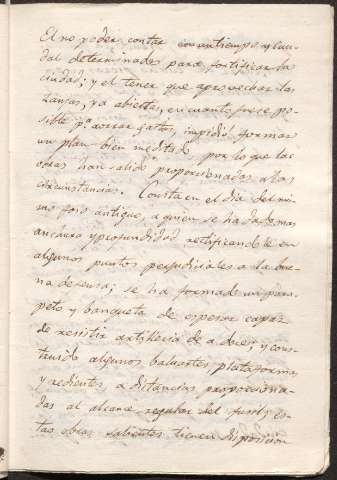 El no poder contar con un tiempo, y cau-
dal determinados para fortificar la
ciudad; y el tener que aprovechar las
Zanjas, ya abiertas, en cuanto fuese po-
sible pª aorrar gastos, impidió formar
un plan bien meditado, por lo que las
obras han salido proporcionadas a las
circunstancias. Consta en el dia del mis-
mo foso antiguo, a quien se ha dado mas
anchura y profundidad rectificandole en
algunos puntos perjudiciales a la bue-
na defensa; se ha formado un para-
peto y banqueta de espesor capaz
de resistir artilleria de a doce; y cons-
truido algunos baluartes, plataformas
y redientes, a distancias proporciona-
das al alcance regular del fusil, y es-
tas obras salientes tienen disposicion